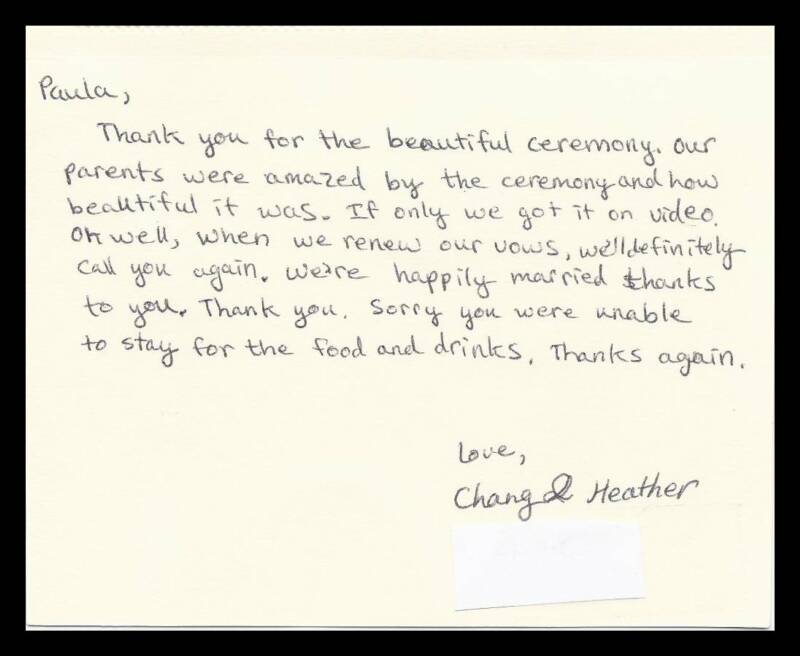 Paula,
Thank you for the beautiful ceremony. Our
parents were amazed by the ceremony and how
beautiful it was. If only we got it on video.
Oh well, when we renew our vows, we'll definitely
call you again. We're happily married thanks
to you. Thank you. Sorry you were unable
to stay for the food and drinks. Thanks again.
Love,
Chang & Heather